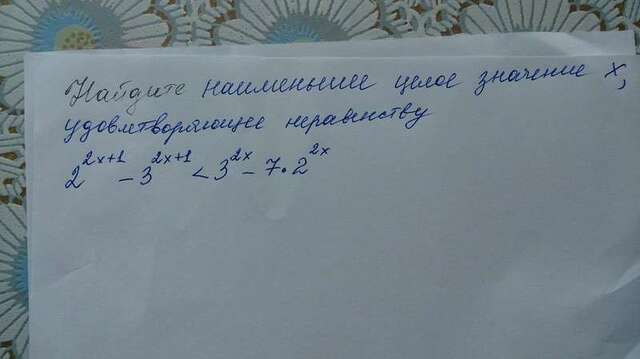 Найдите наименьшее целое значение х,
удовлетворяющее неравенству
2^{2x+1} - 3^{2x+1} < 3^{2x} - 7 · 2^{2x}